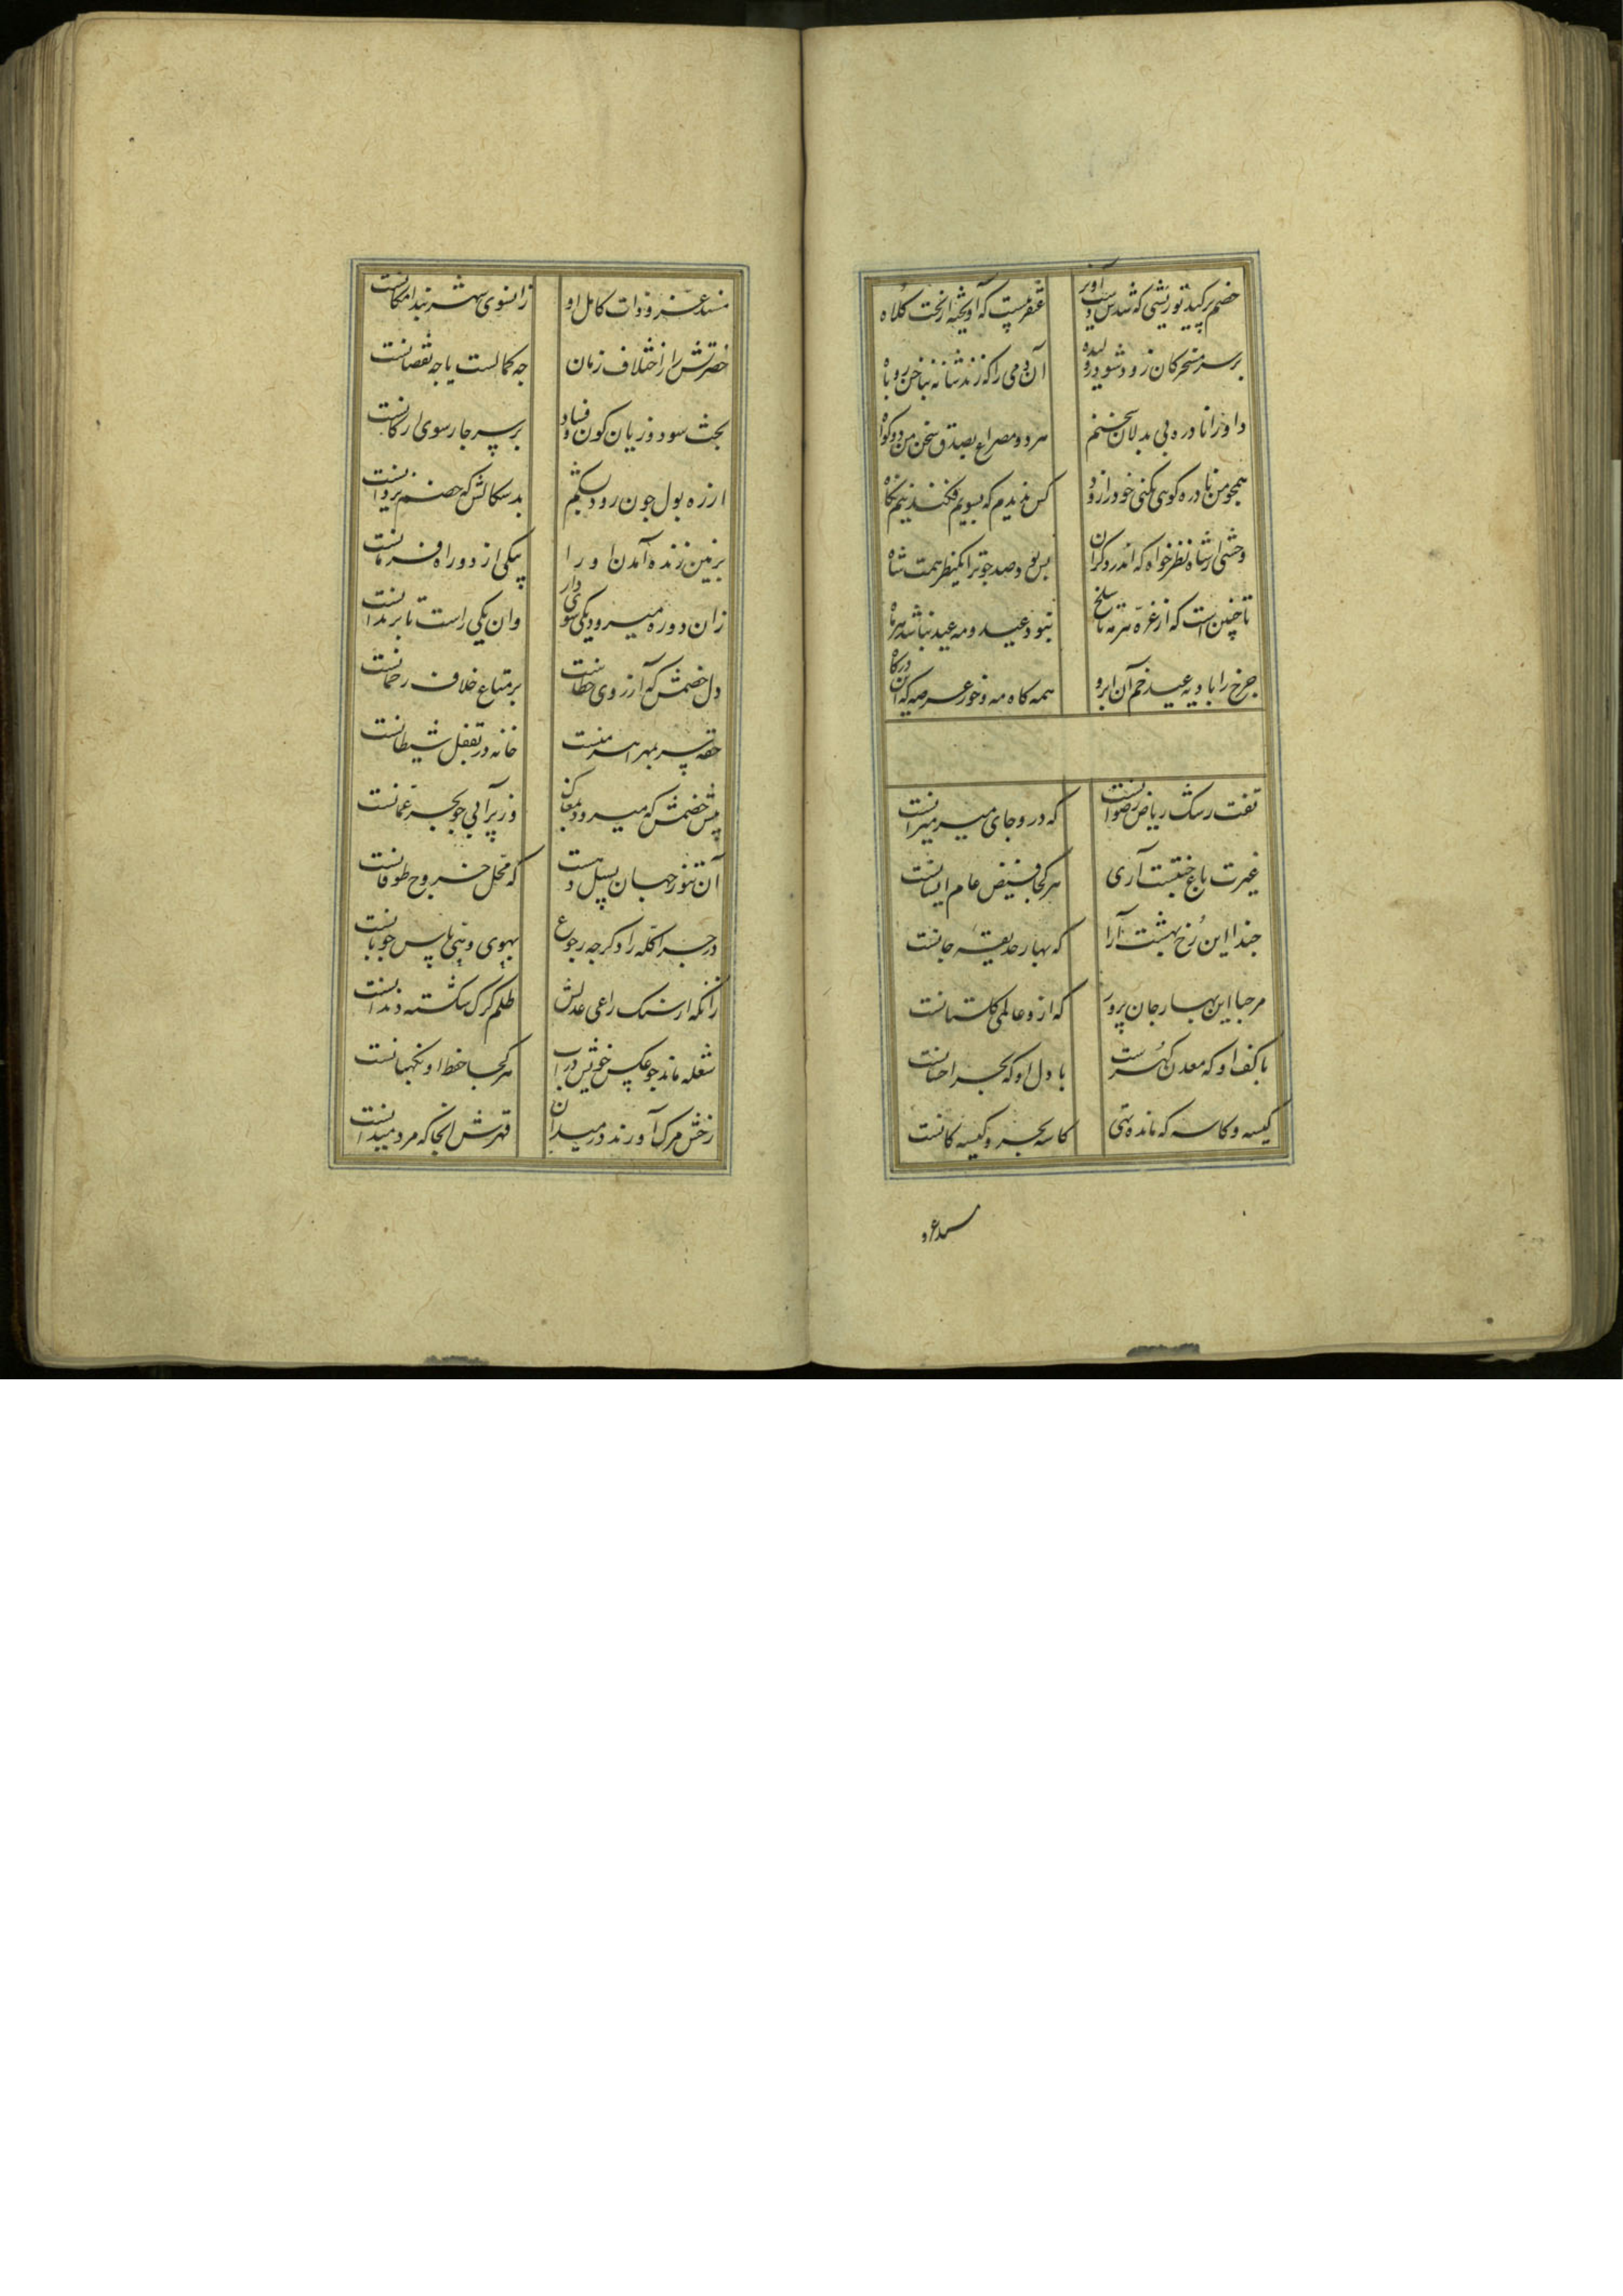 خصم پر کید تو ریشی که شدش دست آویز غضنفریست که آویخته از تخت کلاه
بر سر مسخرکان زود شود ژولیده آن دمی را که زند شانه بناخن روباه
داورا نادره بی بدلان سخنم هر دو مصراع بصدق سخن من دو کواه
همچو من نادره کوی نکنی خود را زود کس ندیدم که بسویم فکند نیم نکاه
وحشی از شاه نظر خواه که اندر دو کران بس بود صد چو ترا یک نظر همت شاه
تا چنین است که از غره هر مه تا سلخ نبود عید و مه عید نباشد هر ماه
چرخ را با دو مه عید خم آن ابرو همه کاه مه و خور عرصه که این درکاه
تفت رشک ریاض رضوانست که درو جای میر میرانست
غیرت باغ جنتست آری هر کجا فیض عام ایشانست
حبذا این رخ بهشت آرا که بهار حدیقه جانست
مرحبا این بهار جان پرور که ازو عالمی کلستانست
با کف او که معدن کهرست با دل او که بحر احسانست
کیسه و کاسه که مانده تهی کاسه بحر و کیسه کانست
مسند عز و
مسند عز و ذات کامل او زانسوی شهر بند امکانست
حضرتش را ز اختلاف زمان چه کمالست یا چه نقصانست
بحث سود و زیان کون و فساد بر سر چارسوی ارکانست
از ره بول چون رود بشکم بد سکالش که خصم یزدانست
بر زمین زنده آمدن او را یکی از دو راه فرمانست
زان دو ره میرود یکی سوی دار وان یکی راست تا بزندانست
دل خصمش که آرزوی خطاست بر متاع خلاف رحمانست
حقه سر بمهر اهرمنست خانه در بقفل شیطانست
پیش خصمش که میرود بمغاک وز پر آبی چو بحر عمانست
آن تنور جهان بسیل دهست که محل خروج طوفانست
در چرا کله را دکر چه رجوع بهوی و نهی پاس چوپانست
زانکه از سنک راعی عدلش ظلم کرک شکسته دندانست
شعله ماند چو عکس خویش در آب هر کجا حفظ او نکهبانست
رخش مرک آورند در میدان قهرش انجا که مرد میدانست